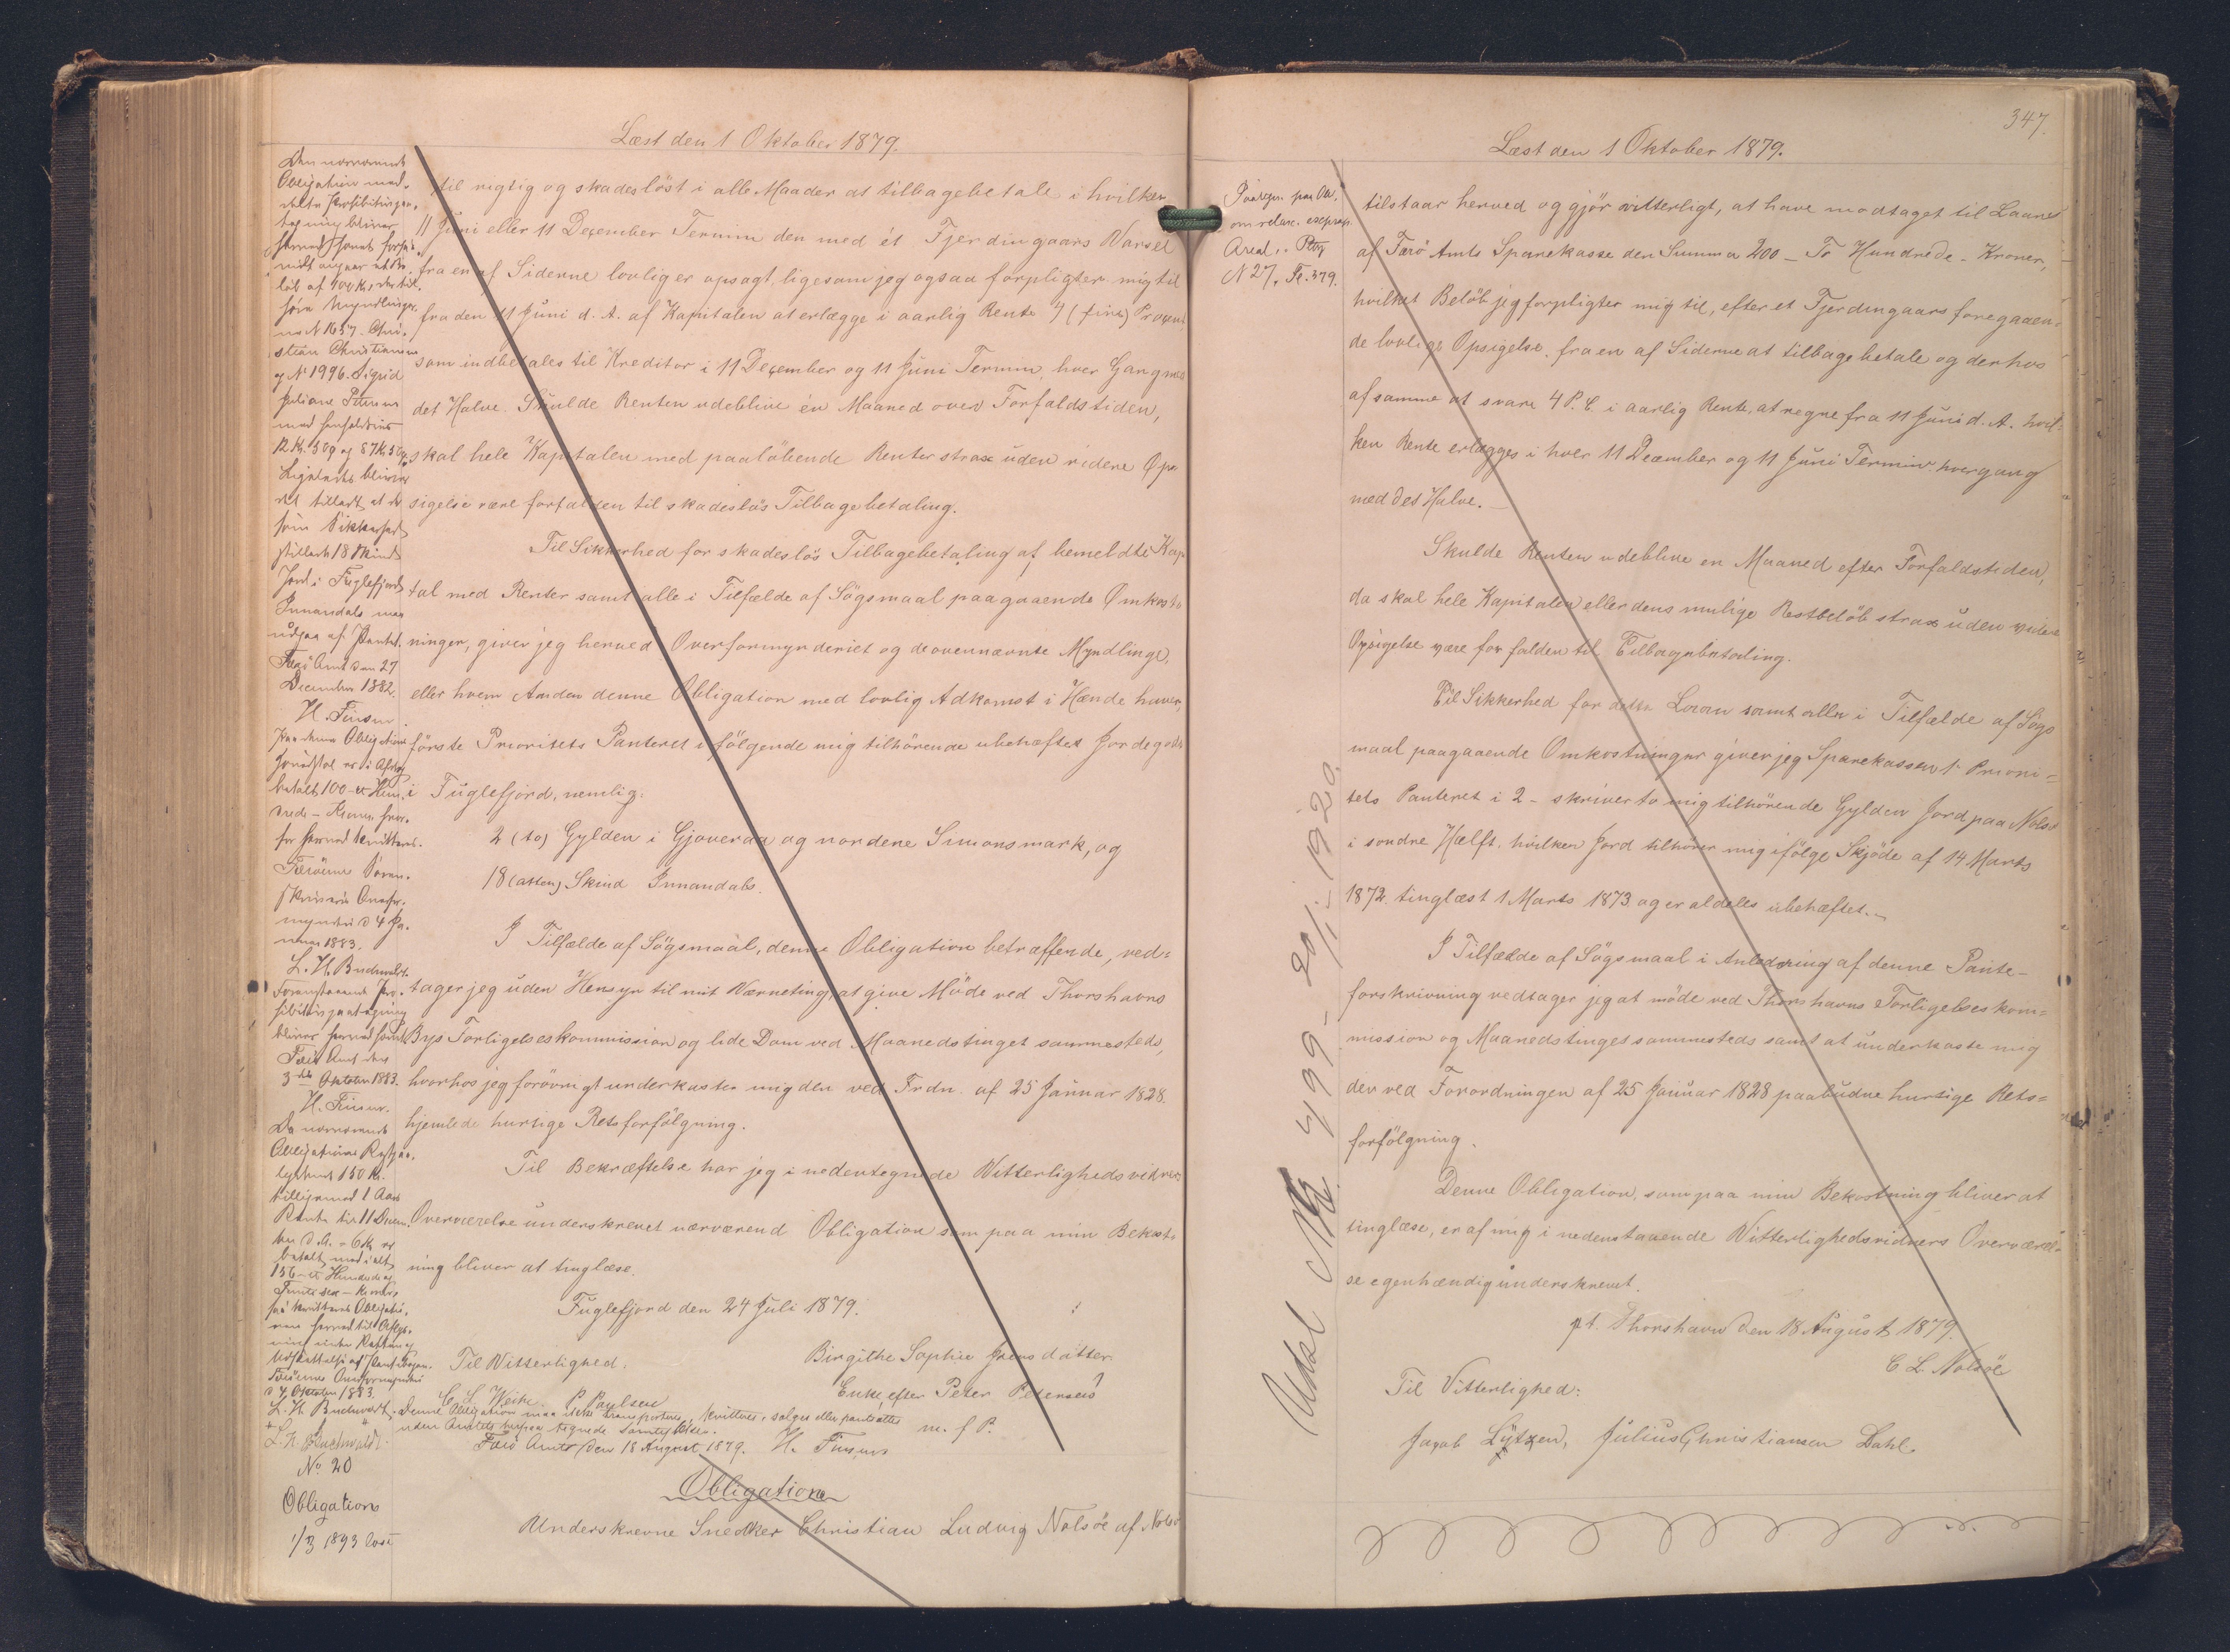 Læst den 1 Oktober 1879.
til rigtig og skadesløst i alle Maader at tilbagebetale i hvilken
11 Juni eller 11 December Termin den med ét Fjerdingaars Varsel
fra en af Siderne lovlig er opsagt, ligesom jeg ogsaa forpligter mig til
fra den 11 Juni d. A. af Kapitalen at erlægge i aarlig Rente 4 (fire) Procent
som indbetales til Kreditor i 11 December og 11 Juni Termin, hver Gang med
det Halve. Skulde Renten udeblive én Maaned over Forfaldstiden,
skal hele Kapitalen med paaløbende Renter strax uden videre Op
sigelse være forfalden til skadesløs Tilbagebetaling.
Til Sikkerhed for skadesløs Tilbagebetaling af bemeldte Kapi
tal med Renter samt alle i Tilfælde af Søgsmaal paagaaende Omkost
ninger, giver jeg herved Overformynderiet og de ovennævnte Myndlinge,
eller hvem Anden denne Obligation med lovlig Adkomst i Hænde haver,
første Prioritets Panteret i følgende mig tilhørende ubehæftet Jordegods
i Fuglefjord, nemlig:
2 (to) Gylden i Gjoveraa og nordene Simonsmark, og
18 (atten) Skind Innandals.
I Tilfælde af Søgsmaal, denne Obligation betræffende, ved=
tager jeg uden Hensyn til mit Værneting, at give Møde ved Thorshavns
Bys Forligelseskommission og lide Dom ved Maanedstinget sammesteds,
hvorhos jeg forøvrigt underkaster mig den ved Frdn. af 25 Januar 1828.
hjemlede hurtige Retsforfølgning.
Til Bekræftelse har jeg i nedentegnede Vitterlighedsvidners
Overværelse underskrevet nærværend Obligation som paa min Bekost
ning bliver at tinglæse.
Fuglefjord den 24 Juli 1879.
Birgithe Sophie Joensdatter
Til Vitterlighed.
Enke efter Peter Petersen
P Poulsen
m. f P.
Denne Obligation maa ikke transporteres, kvitteres, sælges eller pantsættes
uden Amtets herpaa tegnede Samtykke.
Færø Amt den 18 August 1879. H. Finsen
Obligation
Underskrevne Snedker Christian Ludvig Nolsøe af Nolsø
Den nærværende
Obligation med=
bliver
løb af 100 Kr
No 1657. Chri=
stian Christiansen
og No 1996. Sigrid
Juliane Petersen
12 Kr. 50 Ø og 87 Kr 50 Ø
Ligeledes bliver
det tilladt at de
som Sikkerhed
stillede 18 Skind
Jord i Fuglefjord
Innandals maa
udgaa af Pantet.
Færø Amt den 27
December 1882.
H. Finsen.
Paa denne Obligations
betalt 100 - et Hun=
for herved kvitteres.
mynderi d 4 Ja=
nuar 1883.
L. H. Buchwaldt.
bliver herved hævet
Færø Amt den
3die Oktober 1883.
H. Finsen.
Da nærværende
Obligations
lydende 150 Kr.
tilligemed 1 Aars
Rente til 11 Decem=
ber d. A. = 6 Kr er
betalt med ialt
156 - et Hundrede og
Femti sex - Kroner
d 4 Oktober 1883.
L. H. Buchwaldt.
L. H. Buchwaldt.
No 20
Obligation
1/3 1893 læst
347.
Læst den 1 Oktober 1879.
Areal,
N 27, Fo. 379.
tilstaar herved og gjør vitterligt, at have modtaget til Laans
af Færø Amts Sparekasse den Summa 200 - To Hundrede - Kroner,
hvilket Beløb jeg forpligter mig til, efter et Fjerdingaars foregaaen=
de lovlige Opsigelse fra en af Siderne at tilbagebetale og derhos
af samme at svare 4 P. C. i aarlig Rente, at regne fra 11 Juni d. A. hvil=
ken Rente erlægges i hver 11 December og 11 Juni Termin hvergang
med det Halve.
Skulde Renten udeblive en Maaned efter Forfaldstiden,
da skal hele Kapitalen eller dens mulige Restbeløb strax uden videre
Opsigelse være forfalden til Tilbagebetaling.
Til Sikkerhed for dette Laan samt alle i Tilfælde af Søgs
maal paagaaende Omkostninger giver jeg Sparekassen 1 Priori=
tets Panteret i 2 - skriver to mig tilhørende Gylden Jord paa Nolsø
i søndre Hælft, hvilken Jord tilhører mig ifølge Skjøde af 14 Marts
1872. tinglæst 1 Marts 1873 og er aldeles ubehæftet.
I Tilfælde af Søgsmaal i Anledning af denne Pante-
forskrivning vedtager jeg at møde ved Thorshavns Forligelseskom=
mission og Maanedstinget sammesteds samt at underkaste mig
den ved Forordningen af 25 Januar 1828 paabudne hurtige Rets=
forfølgning.
Denne Obligation, som paa min Bekostning bliver at
tinglæse, er af mig i nedenstaaende Vitterlighedsvidners Overværel=
se egenhændig underskrevet.
pt. Thorshavn den 18 August 1879.
C L Nolsøe
Til Vitterlighed:
Jacob Lützen, Julius Christiansen Dahl.
Udsl 499- 20/1-1920.